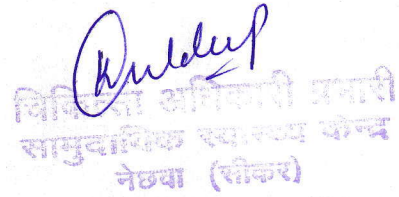 Kuldeep
चिकित्सा अधिकारी प्रभारी
सामुदायिक स्वास्थ्य केन्द्र
नेछवा (सीकर)